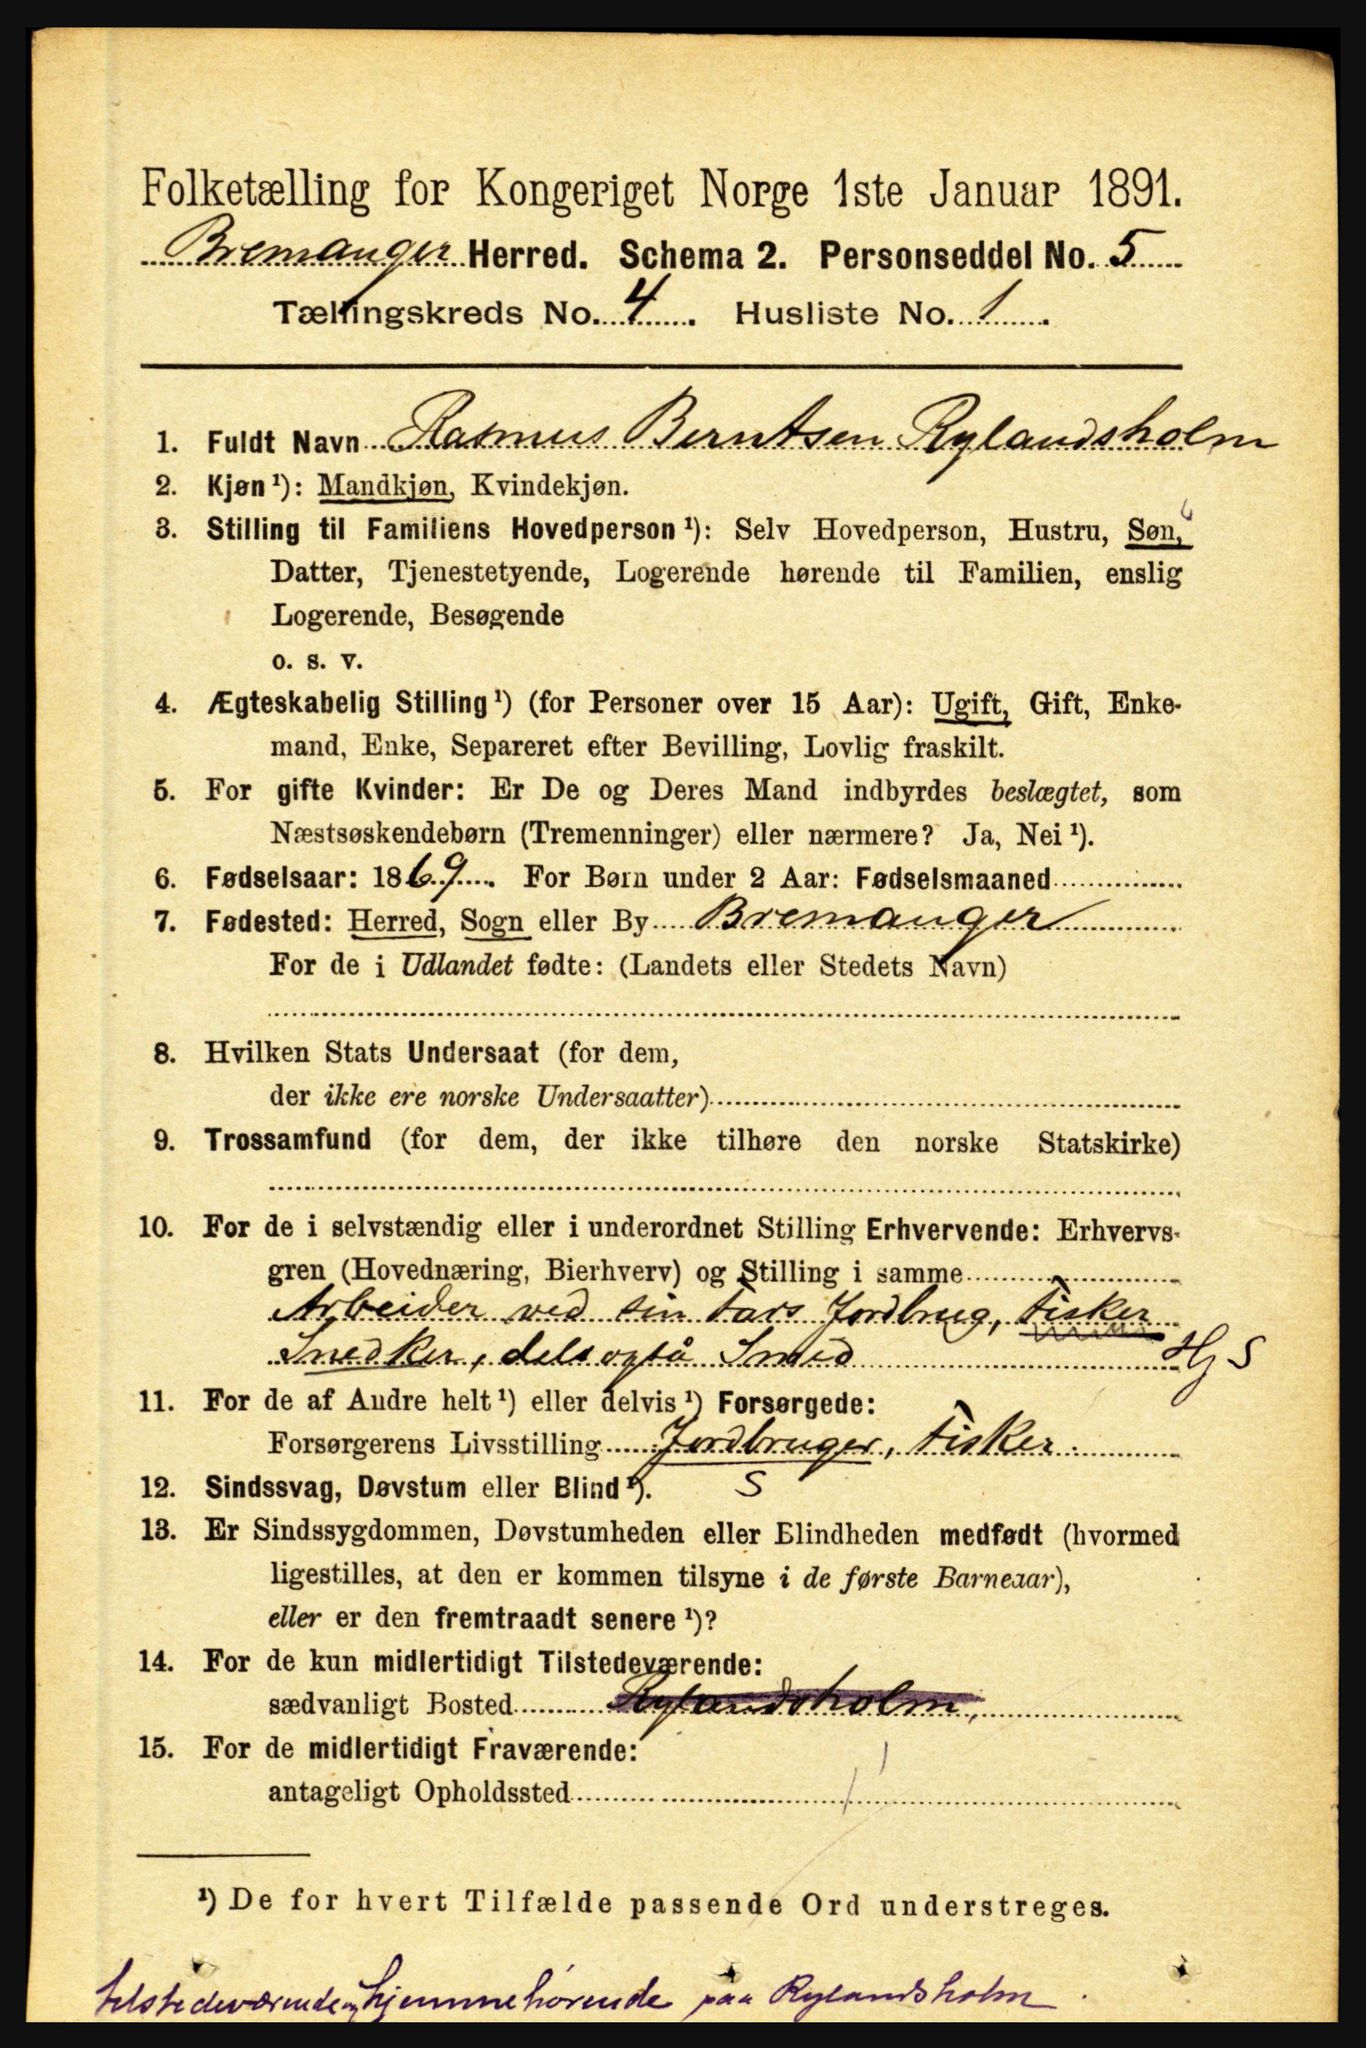 Folketælling for Kongeriget Norge 1ste Januar 1891.
Bremanger Herred. Schema 2. Personseddel No. 5
Tællingskreds No. 4. Husliste No. 1.
1. Fuldt Navn Rasmus Berntsen Rylandsholm
2. Kjøn¹): Mandkjøn, Kvindekjøn.
3. Stilling til Familiens Hovedperson¹): Selv Hovedperson, Hustru, Søn,
Datter, Tjenestetyende, Logerende hørende til Familien, enslig
Logerende, Besøgende
o. s. v.
4. Ægteskabelig Stilling¹) (for Personer over 15 Aar): Ugift, Gift, Enke-
mand, Enke, Separeret efter Bevilling, Lovlig fraskilt.
5. For gifte Kvinder: Er De og Deres Mand indbyrdes beslægtet, som
Næstsøskendebørn (Tremenninger) eller nærmere? Ja, Nei¹).
6. Fødselsaar: 1869. For Børn under 2 Aar: Fødselsmaaned
7. Fødested: Herred, Sogn eller By Bremanger
For de i Udlandet fødte: (Landets eller Stedets Navn)
8. Hvilken Stats Undersaat (for dem,
der ikke ere norske Undersaatter)
9. Trossamfund (for dem, der ikke tilhøre den norske Statskirke)
10. For de i selvstændig eller i underordnet Stilling Erhvervende: Erhvervs-
gren (Hovednæring, Bierhverv) og Stilling i samme
Arbeider ved sin Fars Jordbrug, Fisker
Snedker, dels også Smed Hj S
11. For de af Andre helt¹) eller delvis¹) Forsørgede:
Forsørgerens Livsstilling Jordbruger, Fisker.
12. Sindssvag, Døvstum eller Blind¹). S
13. Er Sindssygdommen, Døvstumheden eller Blindheden medfødt (hvormed
ligestilles, at den er kommen tilsyne i de første Barneaar),
eller er den fremtraadt senere¹)?
14. For de kun midlertidigt Tilstedeværende:
sædvanligt Bosted Rylandsholm,
15. For de midlertidigt Fraværende:
antageligt Opholdssted
¹) De for hvert Tilfælde passende Ord understreges.
tilstedeværende og hjemmehörende paa Rylandsholm.